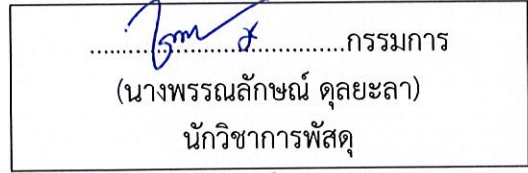 ............................................กรรมการ
(นางพรรณลักษณ์ ดุลยะลา)
นักวิชาการพัสดุ